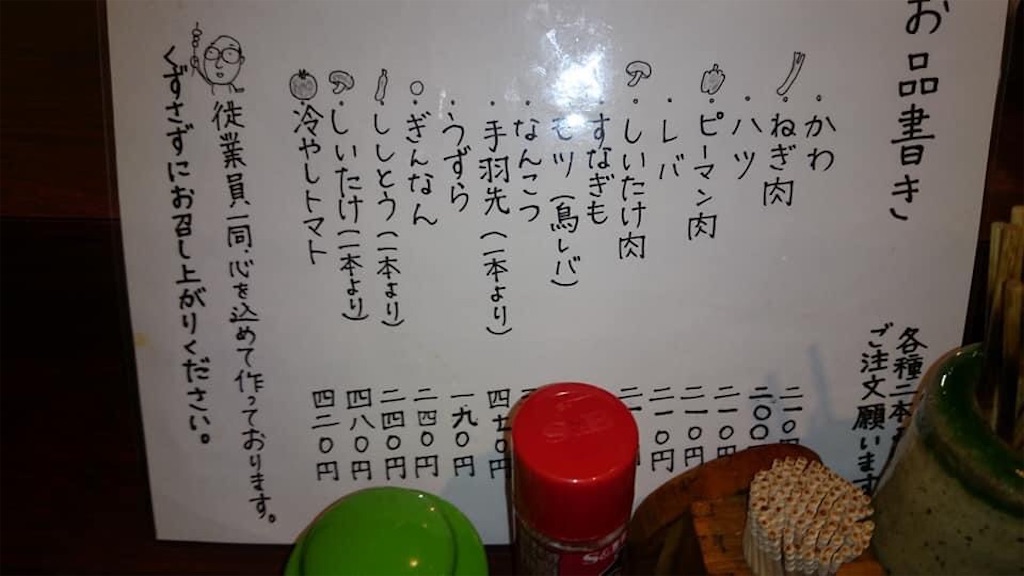 お品書き
各種二本
ご注文願います
・かわ 二一〇円
・ねぎ肉 二〇〇
・ハツ 二一〇円
・ピーマン肉 二一〇円
・レバ 二一〇円
・しいたけ肉
・すなぎも
モツ(鳥レバ)
・なんこつ
・手羽先(一本より) 四七〇円
・うずら 一九〇円
・ぎんなん 二四〇円
・ししとう(一本より) 二四〇円
・しいたけ(一本より) 四八〇円
・冷やしトマト 四二〇円
従業員一同、心を込めて作っております。
くずさずにお召し上がりください。